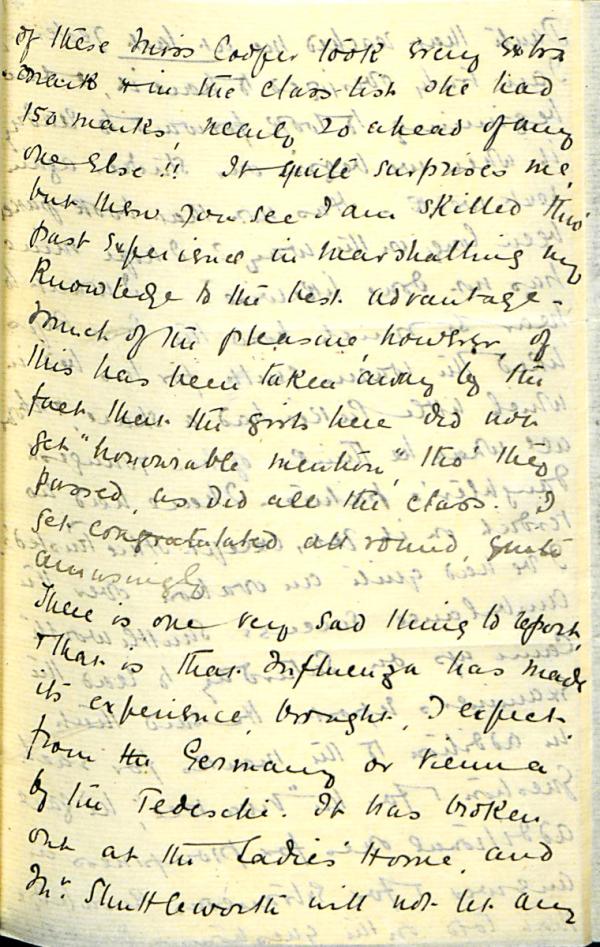 of these Miss Cooper took every extra
mark & in the class list she had
150 marks nearly 20 ahead of any
one else!! It quite surprises me,
but then you see I am skilled thro'
past experience in marshalling my
knowledge to the best advantage -
Much of the pleasure however, of
this has been taken away by the
fact that the girls here did not
get "honourable mention" tho' they
passed, as did all the class. I
get congratulated all round, quite
amusingly.
There is one very sad thing to report,
& that is that Influenza has made
its experience, brought, I expect,
from the Germany or Vienna
by the Tedeschi. It has broken
out at the Ladies' Home, and
Mr. Shuttleworth will not let any